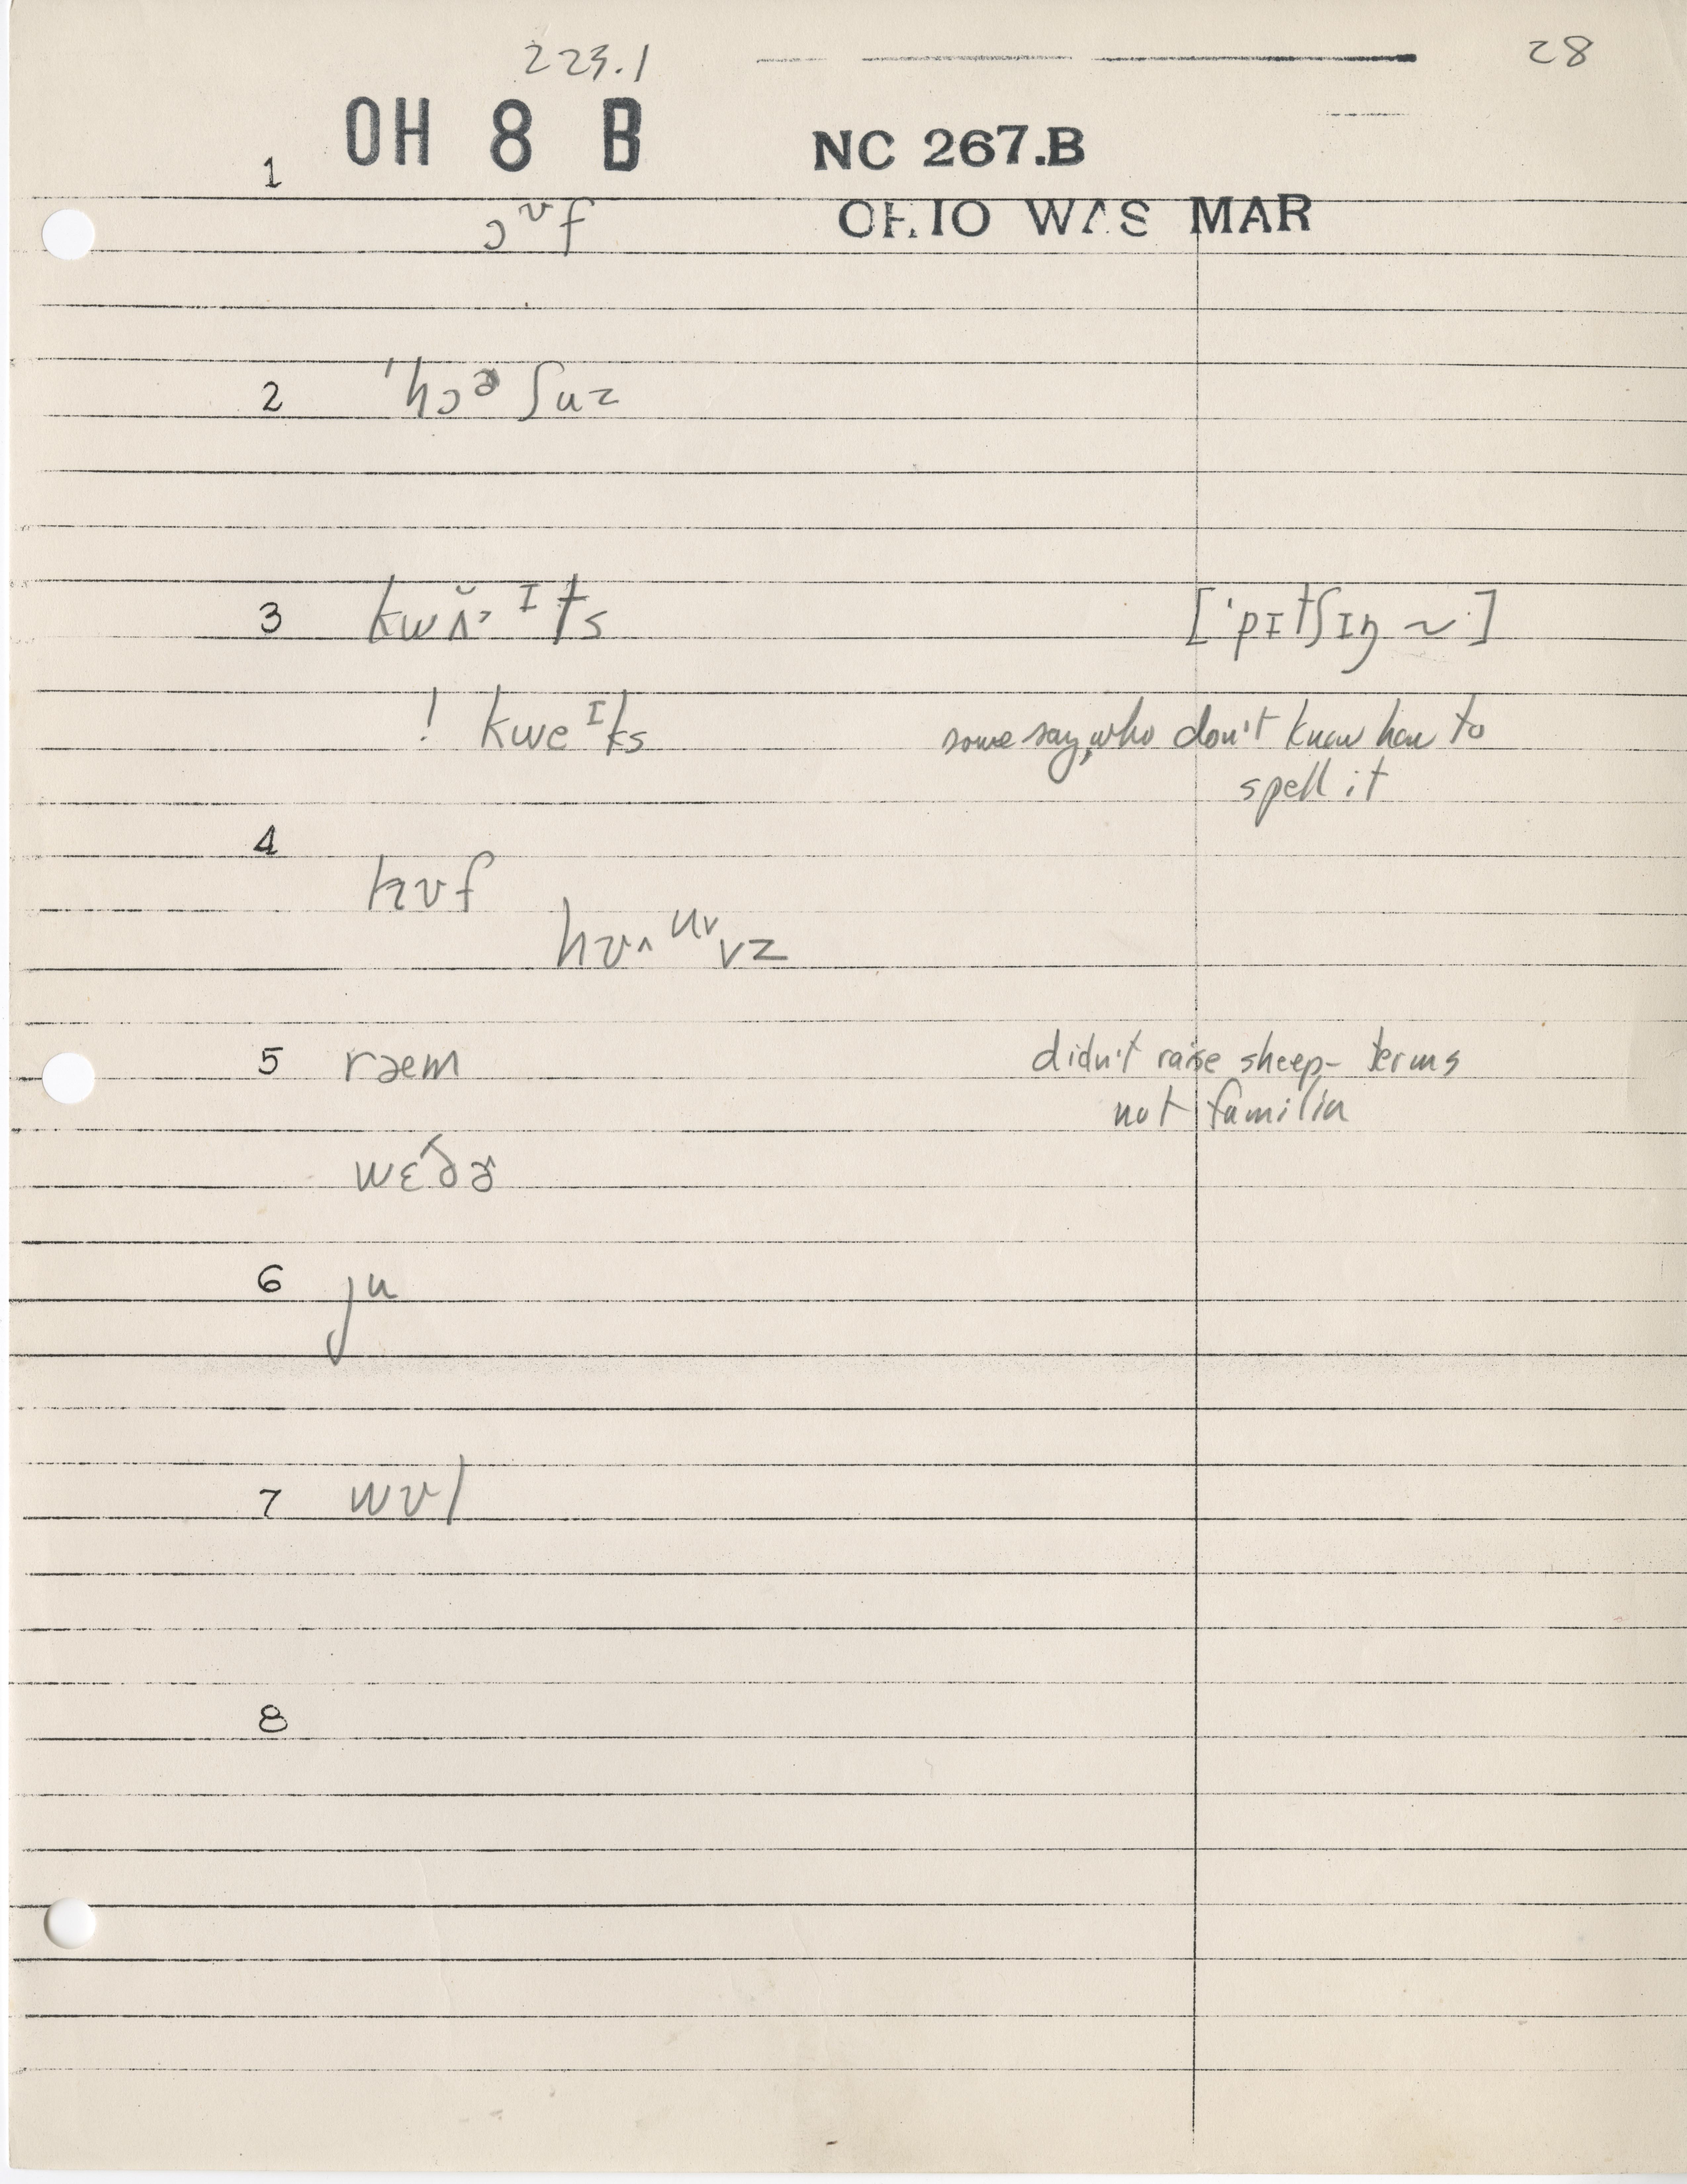 223.1 28
OH 8 B NC 267.B
1
ɔᶷf OHIO WAS MAR
2 ˈhɔɚʃuz
3 kwʌ̆˒ᴵts [ˈpɪtʃɪŋ ~]
! kweᴵks some say, who don't know how to
spell it
4
hʊf
hʊ˄ᵘ˅vz
5 ræm didn't raise sheep- terms
not familiar
wɛðɚ
6 ju
7 wʊl
8